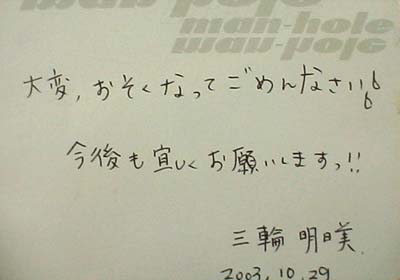 man-hole
大変，おそくなってごめんなさい
今後も宜しくお願いしますっ!!
三輪 明日美
2003.10.29